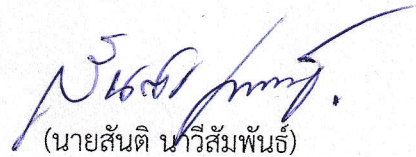 (นายสันติ นาวีสัมพันธ์)